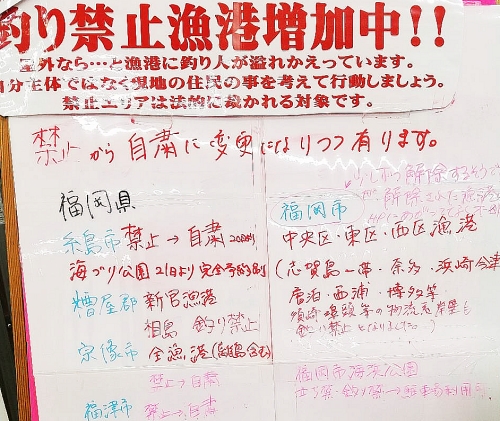 釣り禁止漁港増加中!!
屋外なら…と漁港に釣り人が溢れかえっています。
自分主体ではなく現地の住民の事を考えて行動しましょう。
禁止エリアは法的に裁かれる対象です。
禁止から自粛に変更になりつつ有ります。
福岡県
糸島市 禁止→自粛
海づり公園 21日より完全予約制
糟屋郡 新宮漁港
相島 釣り禁止
宗像市 全漁港(離島含む)
禁止→自粛
福津市 禁止→自粛
少しずつ解除する
解除された漁港
福岡市
中央区・東区・西区漁港
(志賀島一帯・奈多・浜崎今津
唐泊・西浦・博多等
須崎埠頭等の物流系岸壁も
釣り禁止となりました。)
福岡市海浜公園